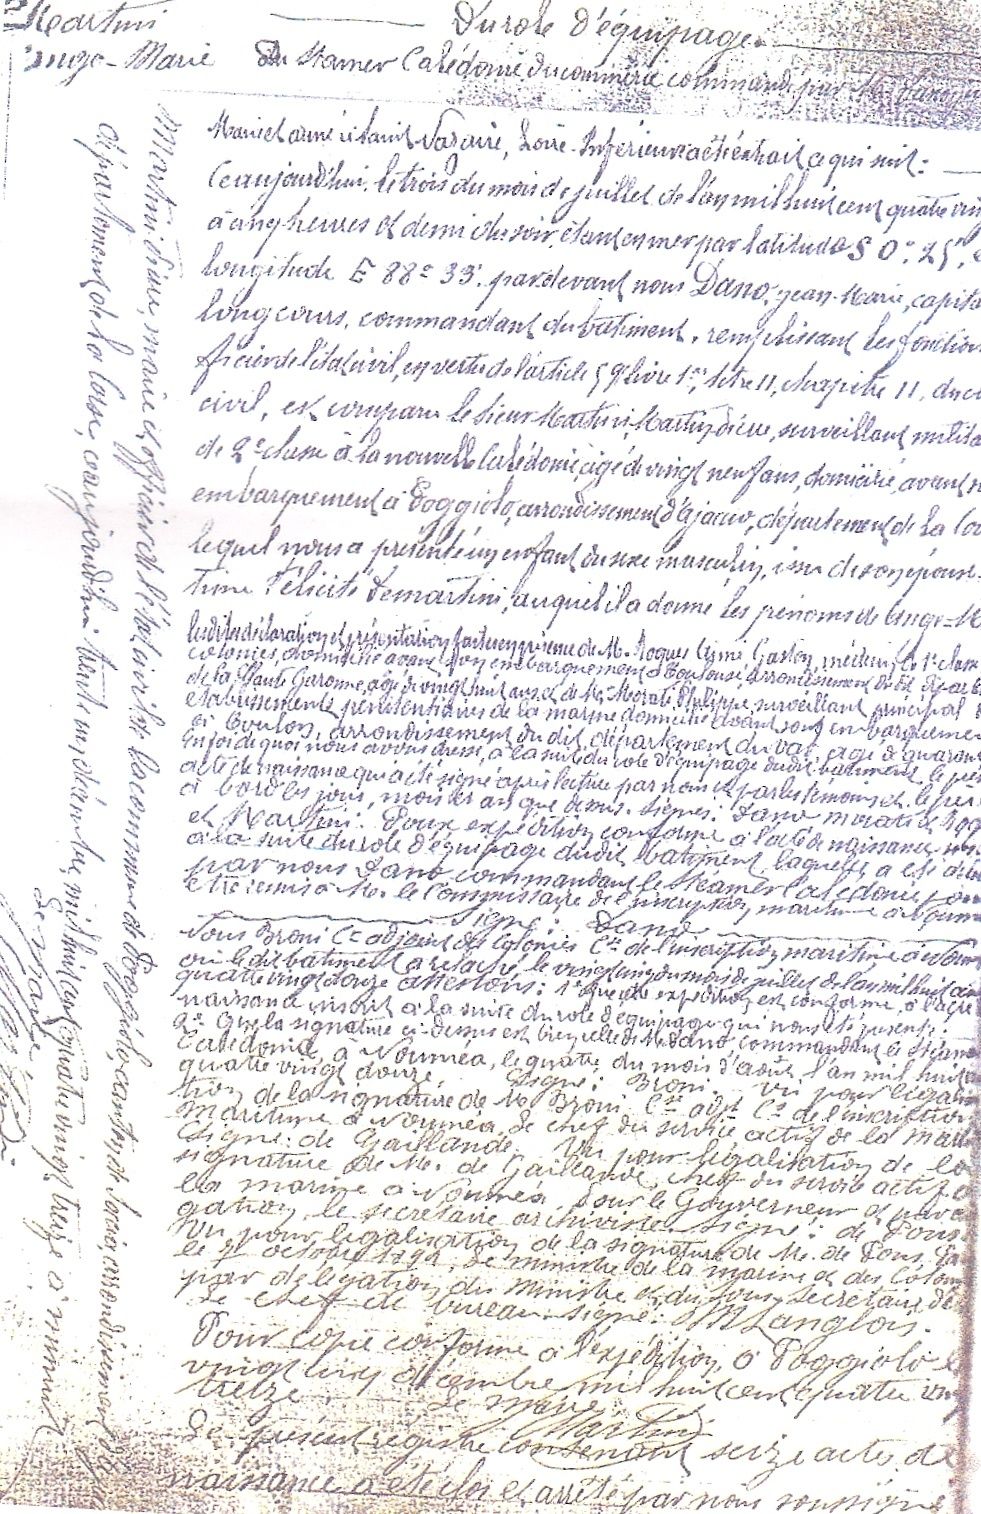 Martini
Ange-Marie
Du role d'équipage
du Steamer Calédonie du commerce commandé par M. Dano
Maniel armé à Saint Nazaire, Loire-Inférieure a été extrait ce qui suit :
Ce aujourd'hui, le trois du mois de juillet de l'an mil huit cent quatre vin
à cinq heures et demi du soir, étant en mer par latitude S 0° 25',
longitude E 88° 33'. par devant nous Dano, Jean-Marie, capita
long cours, commandant du batiment, remplissant les fonction
ficier de l'état civil, en vertu de l'article 59 livre 1er, titre II, chapitre II, du c
civil, est comparu le sieur Martini, Martin, surveillant milita
de 2e classe à la nouvelle Calédonie, âgé de vingt neuf ans, domicilié, avant s
embarquement à Poggiolo, arrondissement d'Ajaccio, département de La Co
lequel nous a présenté un enfant du sexe masculin, issu de son épouse
Félicité Demartini, auquel il a donné les prénoms de Ange-M
lesdites déclaration et présentation faites en présence de M. Roques Aimé Gaston, médecin de 1e classe
colonies, domicilié avant son embarquement à Toulouse, arrondissement du dit, dépar
de la Haute Garonne, âgé de vingt huit ans et de M. Morati Philippe, surveillant principal
établissements pénitentiaires de la marine domicilié avant son embarquemen
à Toulon, arrondissement du dit, département du Var, âgé de quaran
En foi de quoi nous avons dressé, à la suite du role d'équipage dudit batiment, le pré
acte de naissance qui a été signé après lecture par nous et par les témoins et le père
à bord les jour, mois et an que dessus. Signés : Dano Morati Roq
et Martini. Pour expédition conforme à l'acte de naissance
à la suite du role d'équipage dudit batiment laquelle a été dé
par nous Dano commandant le Steamer Calédonie, pou
être remis à M. le Commissaire de l'inscription maritime à Noum
Signé : Dano
Nous Broni Cre adjoint des Colonies Cre de l'inscription maritime à Noum
où ledit batiment a relaché, le vingt cinq du mois de juillet de l'an mil huit cen
quatre vingt douze attestons : 1° Que cette expédition est conforme à l'acte
naissance inscrit à la suite du role d'équipage qui nous a été présenté.
2° Que la signature ci-dessus est bien celle de M. Dano commandant le Steame
Calédonie, à Nouméa, le quatre du mois d'août l'an mil huit
quatre vingt douze. Signé : Broni. Vu pour légalisa
tion de la signature de M. Broni Cre adjt Cre de l'inscription
Maritime à Nouméa, Le chef du service actif de la Mari
Signé : de Gaillande. Vu pour légalisation de la
signature de M. de Gaillande, chef du service actif
la marine à Nouméa pour le Gouverneur et par
gation, le secrétaire archiviste signé : de Pons
Vu pour légalisation de la signature de M. de Pons, Pa
le octobre 1892, Le ministre de la marine et des Colon
par délégation du ministre et du sous secrétaire d'é
Le chef de bureau signé : Langlois.
Pour copie conforme à l'expédition, à Poggiolo le
vingt cinq décembre mil huit cent quatre vin
treize. Le maire,
Martini
Le présent registre contenant seize actes de
naissance a été clos et arrêté par nous soussigné
Martini maire et officier de l'état civil de la commune de Poggiolo, canton de Soccia, arrondissement d'Aj
département de la Corse, ce aujourd'hui trente un décembre mil huit cent quatre vingt treize à minuit
Le maire